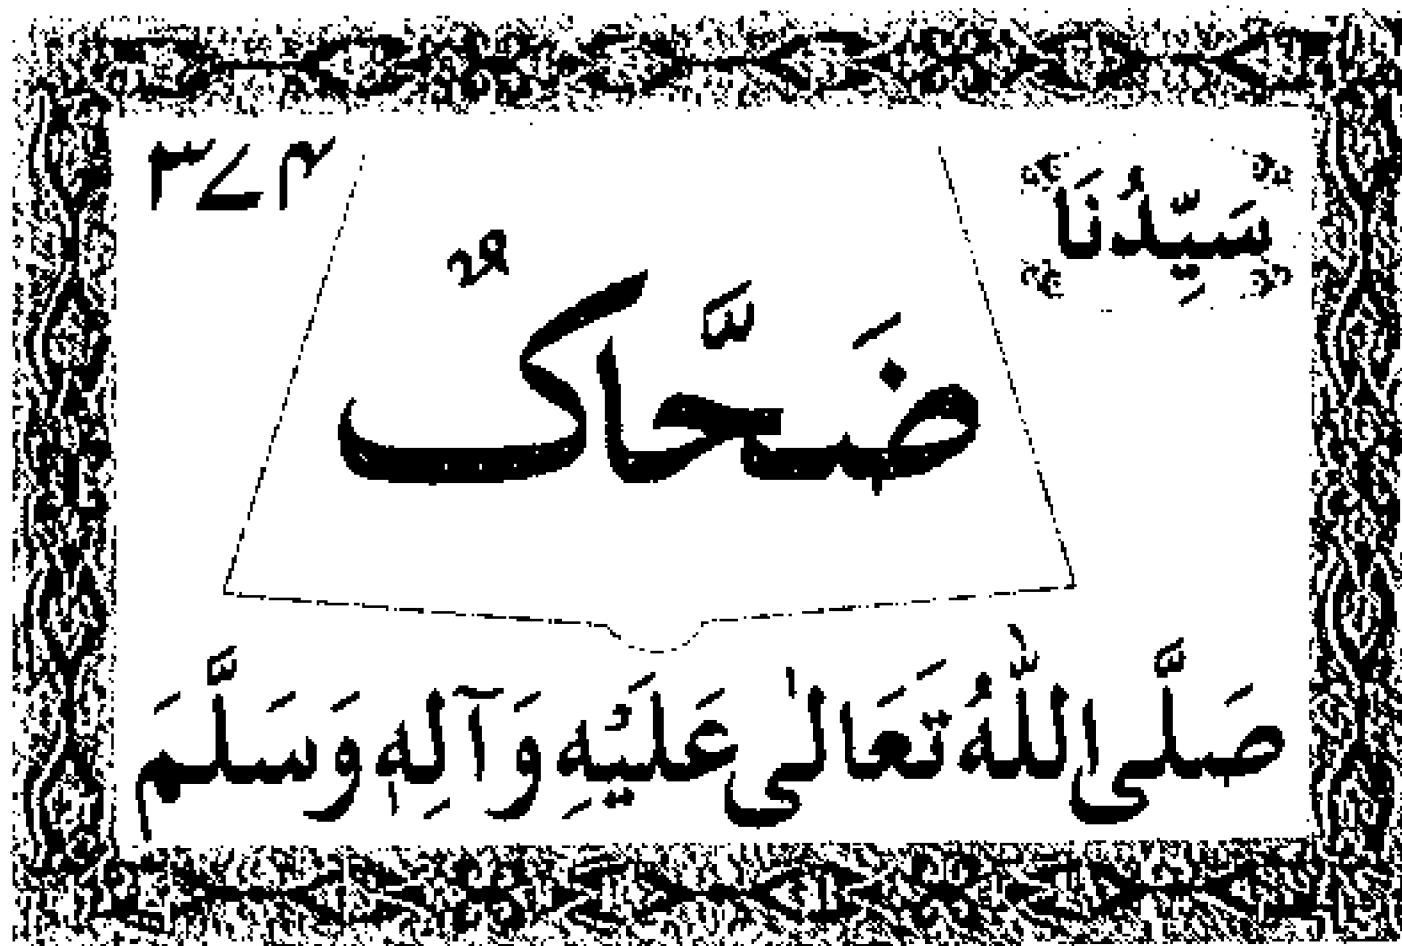 سَيِّدُنَا
۳۷۴
ضَحَّاکٌ
صَلَّی اللّٰهُ تَعَالٰی عَلَيْهِ وَآلِهٖ وَسَلَّمَ